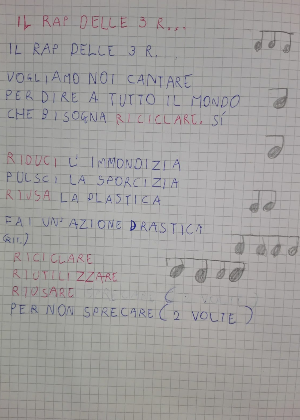 IL RAP DELLE 3 R...
IL RAP DELLE 3 R.
VOGLIAMO NOI CANTARE
PER DIRE A TUTTO IL MONDO
CHE BISOGNA RICICLARE. SÍ
RIDUCI L'IMMONDIZIA
PULSCI LA SPORCIZIA
RIUSA LA PLASTICA
FAI UN'AZIONE DRASTICA
RICICLARE
RIUTILIZZARE
RIUSARE
PER NON SPRECARE (2 VOLTE)